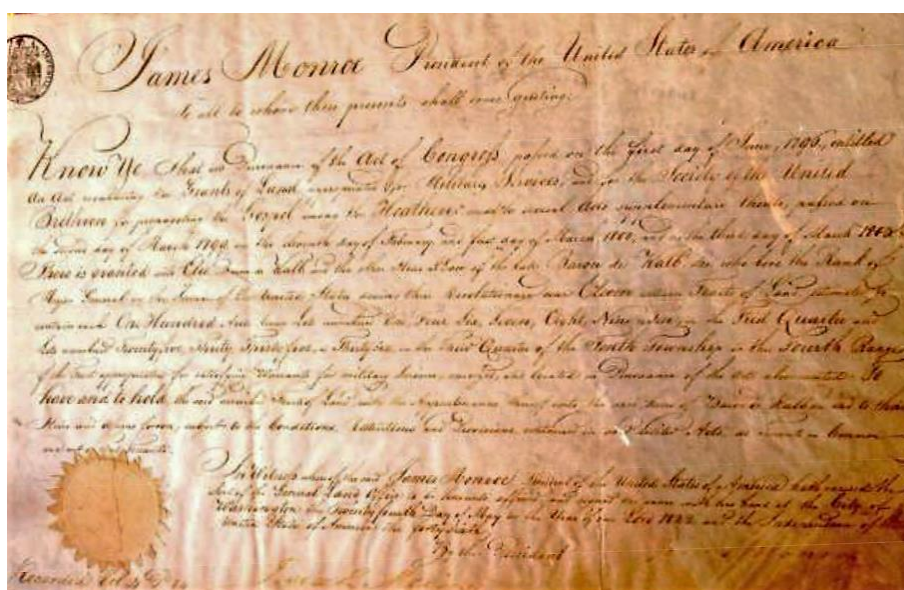 James Monroe President of the United States of America
To all to whom these presents shall come, greeting:
Know Ye, That in Pursuance of the Act of Congress passed on the first day of June, 1796, entitled
An Act regulating the Grants of Land appropriated for Military Services, and for the Society of the United
Brethren for propagating the Gospel among the Heathen: and of several Acts supplementary thereto, passed on
the second day of March 1799, on the eleventh day of February, and first day of March 1800, and on the third day of March
There is granted unto Elie Baron de Kalb and the other Heirs at law of the late Baron de Kalb who bore the Rank of
Major General in the Army of the United States during the Revolutionary war Eleven certain Tracts of Land estimated to
contain each One Hundred Acres being Lots numbered One, Four, Six, Seven, Eight, Nine in the Quarter and
Lots numbered Thirty in the Third Quarter of the Tenth Township in the Fourth Range
of the Tract appropriated for satisfying Warrants for military Services, surveyed, and located in Pursuance of the Acts above recited: To
have and to hold the said described Tracts of Land, with the Appurtenances thereof unto the said Heirs of Baron de Kalb and to their
Heirs and assigns forever, subject to the Conditions, Restrictions and Provisions contained in the said Acts, as tenants in Common
and not as joint tenants.
In Witness whereof the said James Monroe President of the United States of America hath caused the
Seal of the General Land Office to be hereunto affixed, and signed the same with his hand at the City of
Washington the Twenty fourth Day of May in the Year of our Lord 1822 and of the Independence of the
United States of America the forty sixth
By the President
James Monroe
Recorded Vol